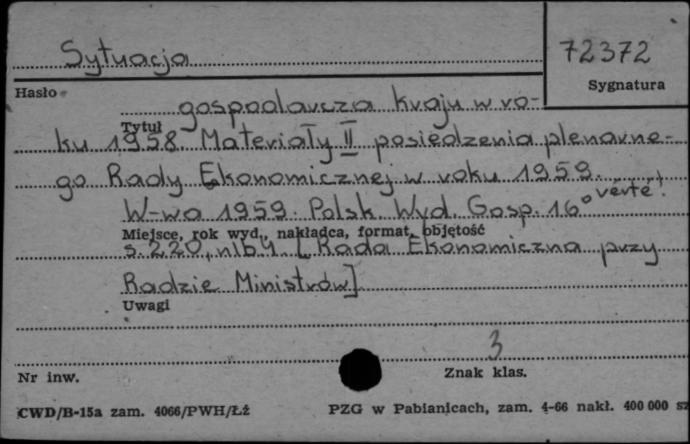 Sytuacja
72372
Hasło
Sygnatura
gospodarcza kraju w ro-
Tytuł
ku 1958. Materiały II posiedzenia plenarne-
go Rady Ekonomicznej w roku 1959.
verte!
W-wa 1959. Polsk. Wyd. Gosp. 16°
Miejsce, rok wyd., nakładca, format, objętość
s. 220, nlb. 4 [Rada Ekonomiczna przy
Radzie Ministrów]
Uwagi
3
Nr inw.
Znak klas.
CWD/B-15a zam. 4066/PWH/Łż
PZG w Pabianicach, zam. 4-66 nakł. 400 000 sz